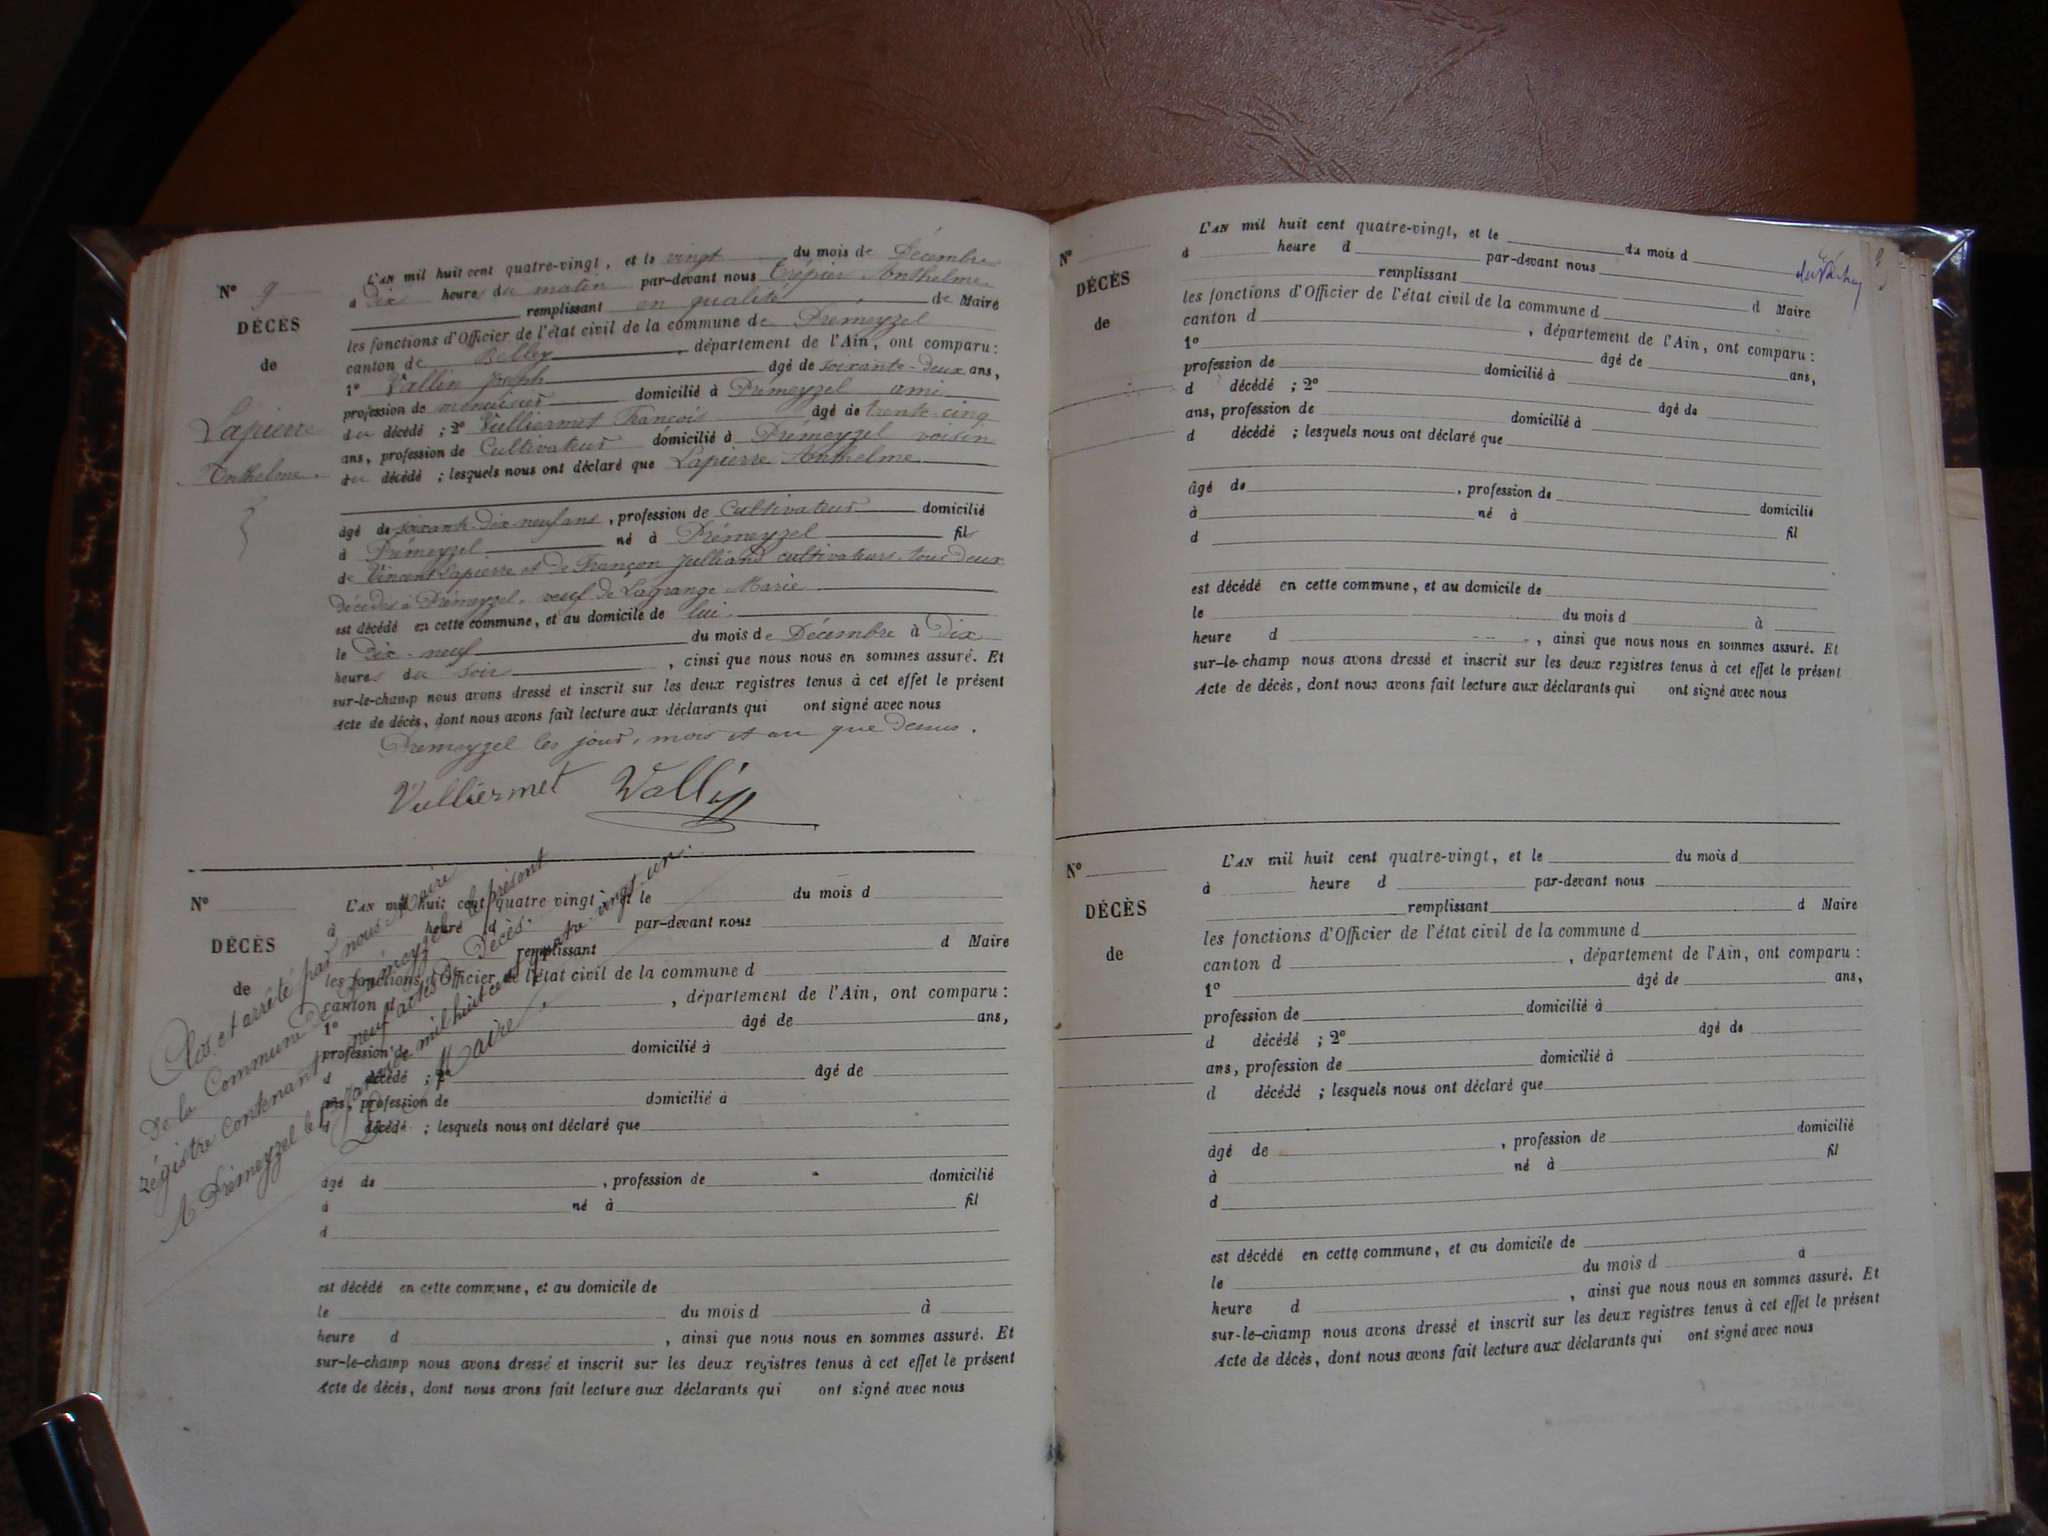 N° 9
DÉCÈS
de
Lapierre
Anthelme
L'AN mil huit cent quatre-vingt, et le vingt du mois de Décembre
à Dix heures du matin par-devant nous Trépier Anthelme
remplissant en qualité de Maire
les fonctions d'Officier de l'état civil de la commune de Prémeyzel
canton de Belley, département de l'Ain, ont comparu :
1° Vallin Joseph âgé de soixante-deux ans,
profession de menuisier domicilié à Prémeyzel ami
du décédé ; 2° Vulliermet François âgé de trente-cinq
ans, profession de Cultivateur domicilié à Prémeyzel voisin
du décédé ; lesquels nous ont déclaré que Lapierre Anthelme
âgé de soixante-Dix-neuf ans, profession de Cultivateur domicilié
à Prémeyzel né à Prémeyzel fils
de Vincent Lapierre et de Françon Julliand cultivateurs tous deux
décédés à Prémeyzel, veuf de Lagrange Marie
est décédé en cette commune, et au domicile de lui
le Dix-neuf du mois de Décembre à Dix
heures du soir, ainsi que nous nous en sommes assuré. Et
sur-le-champ nous avons dressé et inscrit sur les deux registres tenus à cet effet le présent
Acte de décès, dont nous avons fait lecture aux déclarants qui ont signé avec nous
Prémeyzel les jour, mois et an que dessus.
Vulliermet Vallin
N°
DÉCÈS
de
L'AN mil huit cent quatre vingt, et le du mois d
à heure d par-devant nous
remplissant d Maire
les fonctions d'Officier de l'état civil de la commune d
canton d , département de l'Ain, ont comparu :
1° âgé de ans,
profession de domicilié à
d décédé ; 2° âgé de
ans, profession de domicilié à
d décédé ; lesquels nous ont déclaré que
âgé de , profession de domicilié
à né à fil
d
est décédé en cette commune, et au domicile de
le du mois d à
heure d , ainsi que nous nous en sommes assuré. Et
sur-le-champ nous avons dressé et inscrit sur les deux registres tenus à cet effet le présent
Acte de décès, dont nous avons fait lecture aux déclarants qui ont signé avec nous
Clos et arrêté par nous Maire
De la Commune De Prémeyzel le présent
régistre contenant neuf actes De Décès.
A Prémeyzel le Janvier mil huit cent quatre vingt-un.
Maire
N°
DÉCÈS
de
L'AN mil huit cent quatre-vingt, et le du mois d
à heure d par-devant nous
remplissant d Maire
les fonctions d'Officier de l'état civil de la commune d
canton d , département de l'Ain, ont comparu :
1° âgé de ans,
profession de domicilié à
d décédé ; 2° âgé de
ans, profession de domicilié à
d décédé ; lesquels nous ont déclaré que
âgé de , profession de domicilié
à né à
d fil
est décédé en cette commune, et au domicile de
le du mois d à
heure d , ainsi que nous nous en sommes assuré. Et
sur-le-champ nous avons dressé et inscrit sur les deux registres tenus à cet effet le présent
Acte de décès, dont nous avons fait lecture aux déclarants qui ont signé avec nous
N°
DÉCÈS
de
L'AN mil huit cent quatre-vingt, et le du mois d
à heure d par-devant nous
remplissant d Maire
les fonctions d'Officier de l'état civil de la commune d
canton d , département de l'Ain, ont comparu :
1° âgé de ans,
profession de domicilié à
d décédé ; 2° âgé de
ans, profession de domicilié à
d décédé ; lesquels nous ont déclaré que
âgé de , profession de domicilié
à né à fil
d
est décédé en cette commune, et au domicile de
le du mois d à
heure d , ainsi que nous nous en sommes assuré. Et
sur-le-champ nous avons dressé et inscrit sur les deux registres tenus à cet effet le présent
Acte de décès, dont nous avons fait lecture aux déclarants qui ont signé avec nous